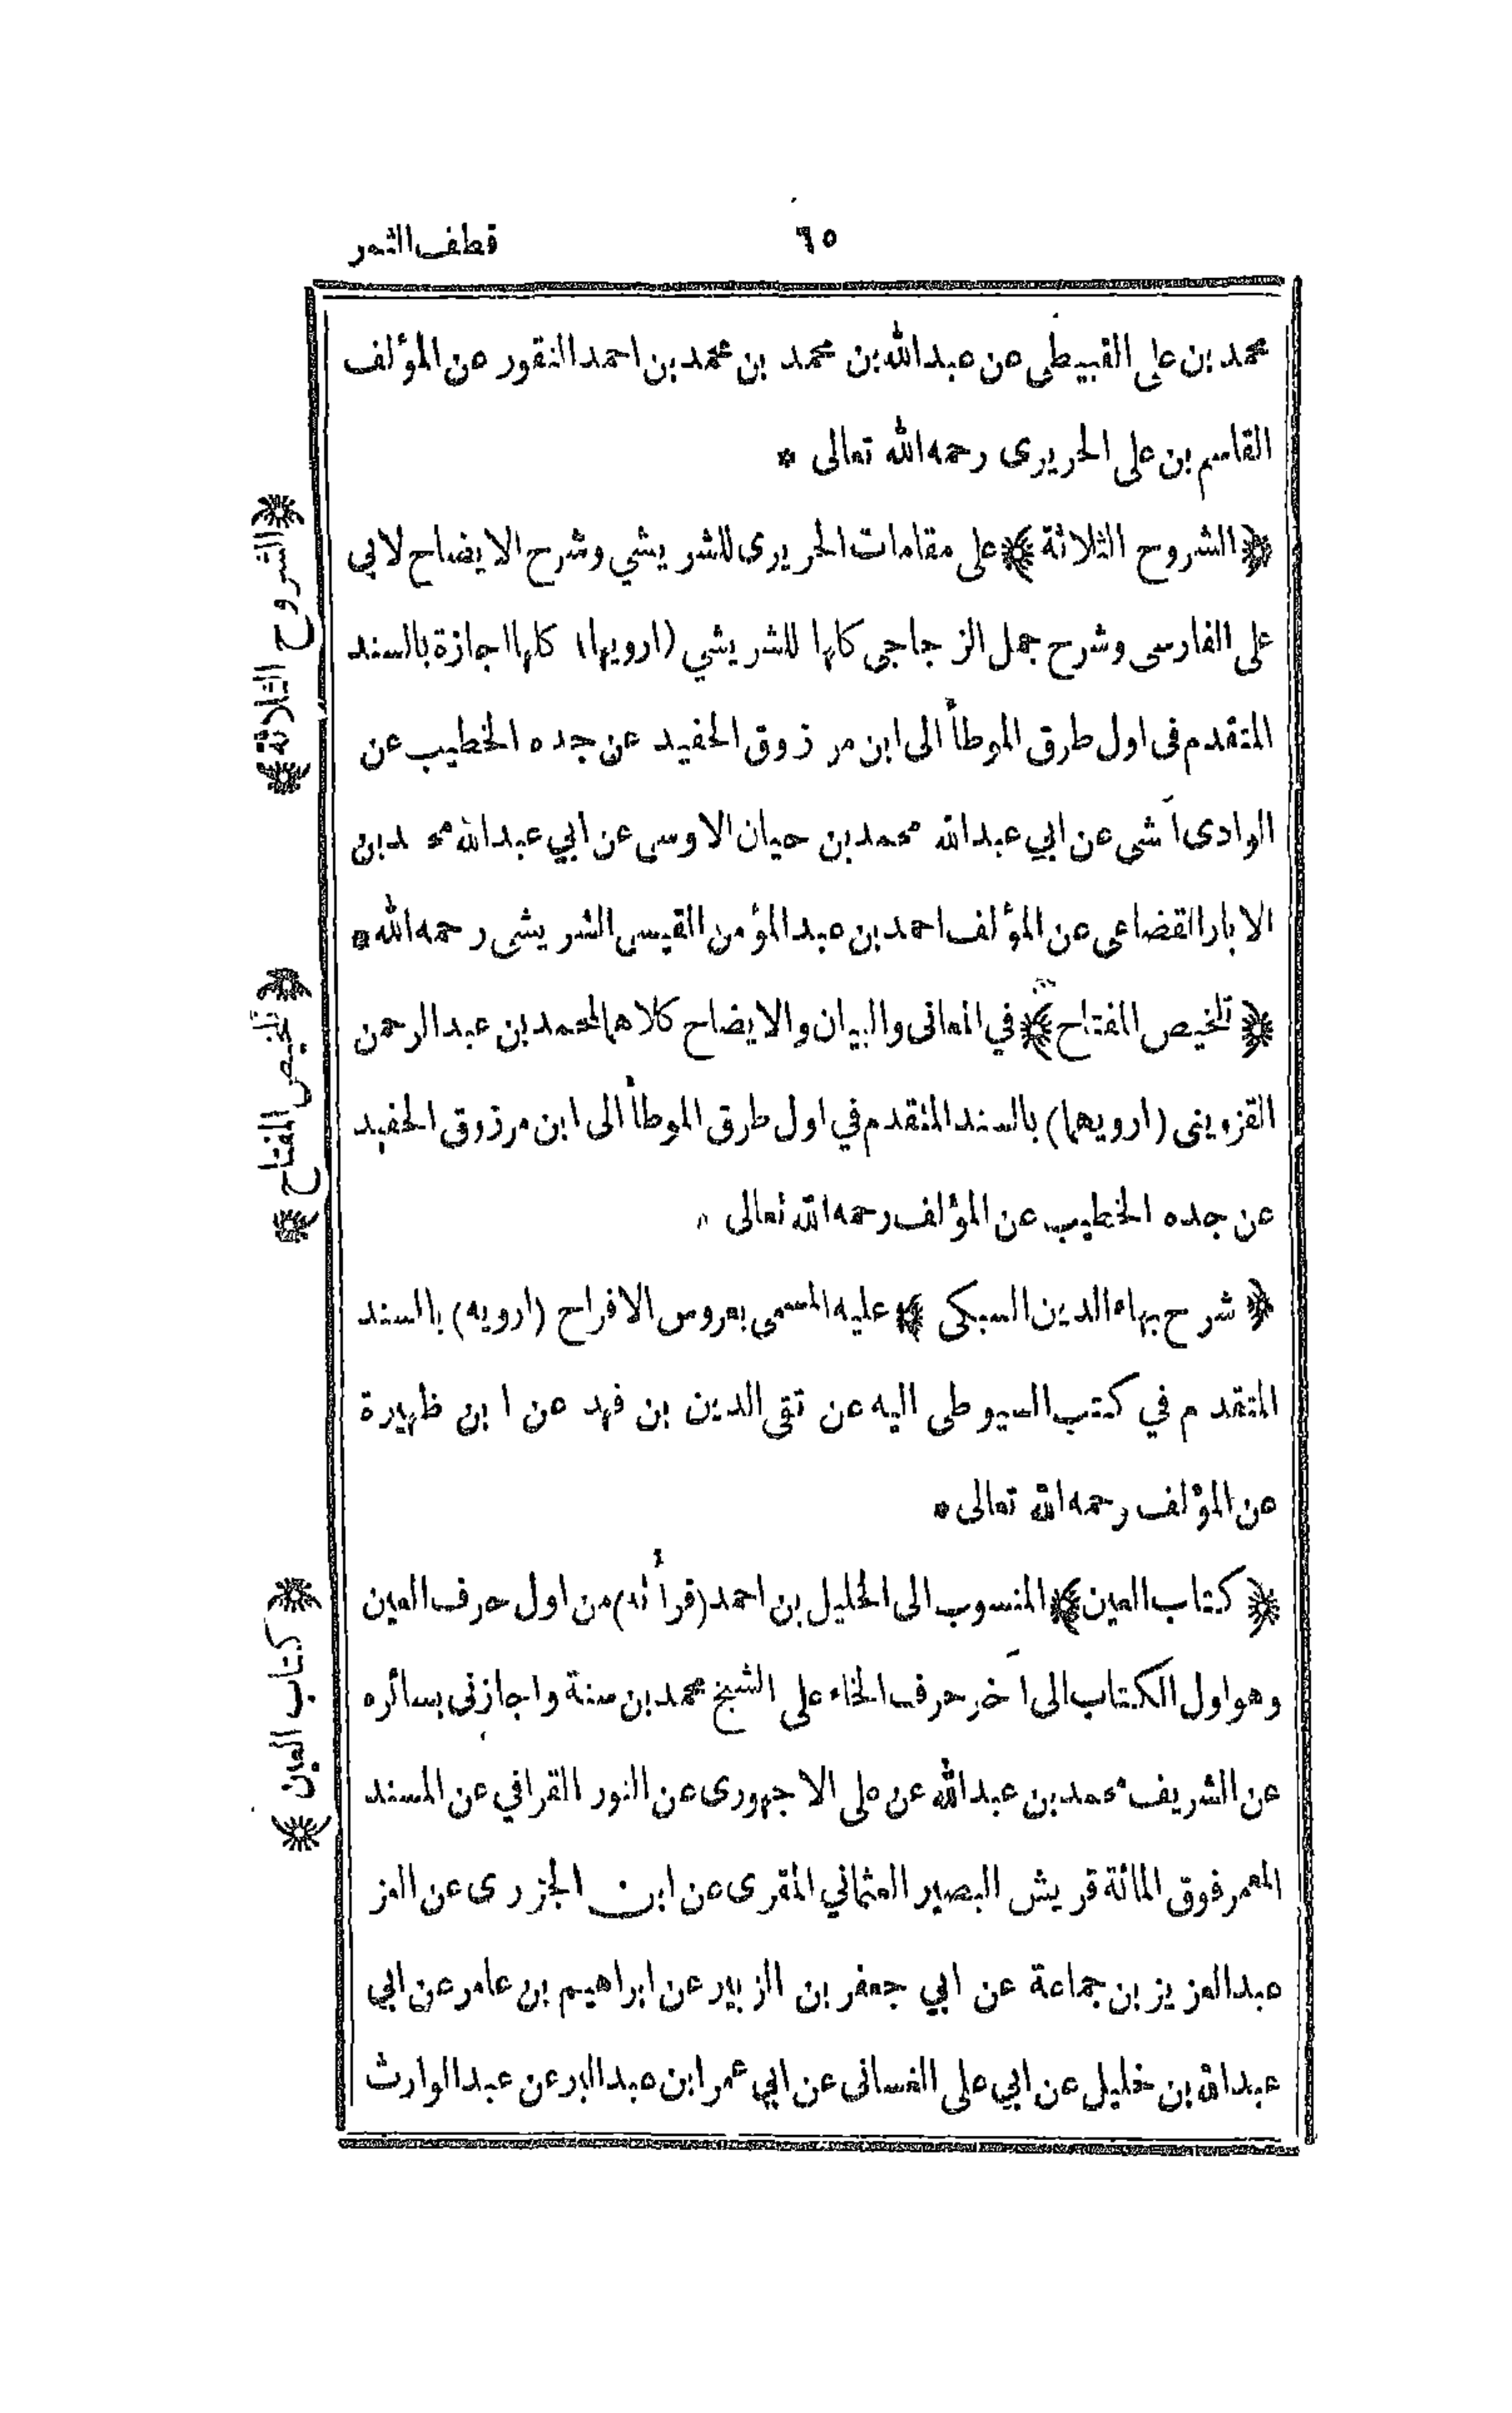 ٦٥ قطف الثمر
محمد بن علي القبيطى عن عبد الله بن محمد بن محمد بن احمد النقور عن المؤلف
القاسم بن على الحريرى رحمه الله تعالى *
﴿ الشروح الثلاثة ﴾ على مقامات الحريرى للشريشي وشرح الايضاح لابي
على الفارسى وشرح جمل الزجاجى كلها للشريشي (ارويها) كلها اجازة بالسند
المتقدم فى اول طرق الموطأ الى ابن مرزوق الحفيد عن جده الخطيب عن
الوادى آشى عن ابي عبد الله محمد بن حيان الاوسى عن ابي عبد الله محمد بن
الابار القضاعى عن المؤلف احمد بن عبد المؤمن القيسى الشريشى رحمه الله *
﴿ تلخيص المفتاح ﴾ في المعانى والبيان والايضاح كلاهما لمحمد بن عبد الرحمن
القزوينى (ارويهما) بالسند المتقدم في اول طرق الموطأ الى ابن مرزوق الحفيد
عن جده الخطيب عن المؤلف رحمه الله تعالى *
﴿ شرح بهاء الدين السبكى ﴾ عليه المسمى بعروس الافراح (ارويه) بالسند
المتقدم في كتب السيوطى اليه عن تقى الدين بن فهد عن ابن ظهيرة
عن المؤلف رحمه الله تعالى *
﴿ كتاب العين ﴾ المنسوب الى الخليل بن احمد (قرأته) من اول حرف العين
وهو اول الكتاب الى آخر حرف الخاء على الشيخ محمد بن سنة واجازنى بسائره
عن الشريف محمد بن عبد الله عن على الاجهورى عن النور القرافي عن المسند
المعمر فوق المائة قريش البصير العثماني المقرى عن ابن الجزرى عن العز
عبد العزيز بن جماعة عن ابي جعفر بن الزبير عن ابراهيم بن عامر عن ابي
عبد الله بن خليل عن ابي على الغسانى عن ابي عمر ابن عبد البر عن عبد الوارث
﴿ الشروح الثلاثة ﴾
﴿ تلخيص المفتاح ﴾
﴿ كتاب العين ﴾